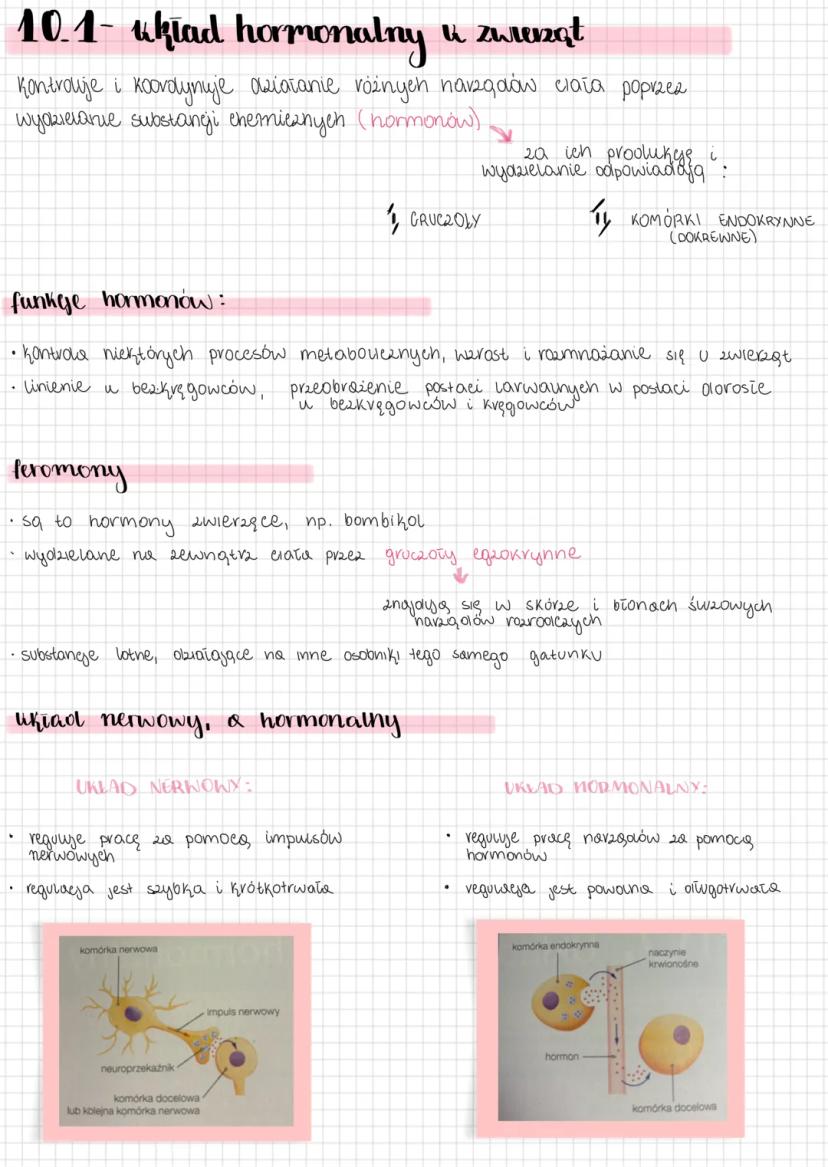 10.1- układ hormonalny u zwierząt
Kontroluje i koordynuje działanie różnych narządów ciała poprzez
wydzielanie substancji chemicznych (hormonów)
za ich produkcję i
wydzielanie odpowiadają :
I, GRUCZOŁY
II, KOMÓRKI ENDOKRYNNE
(DOKREWNE)
funkcje hormonów:
• kontrola niektórych procesów metabolicznych, wzrost i rozmnażanie się u zwierząt
• linienie u bezkręgowców, przeobrażenie postaci larwalnych w postaci dorosłe
u bezkręgowców i kręgowców
feromony
• są to hormony zwierzęce, np. bombikol
• wydzielane na zewnątrz ciała przez gruczoły egzokrynne
znajdują się w skórze i błonach śluzowych
narządów rozrodczych
• substancje lotne, działające na inne osobniki tego samego gatunku
układ nerwowy, a hormonalny
UKŁAD NERWOWY:
• reguluje pracę za pomocą impulsów
nerwowych
• regulacja jest szybka i krótkotrwała
komórka nerwowa
impuls nerwowy
neuroprzekaźnik
komórka docelowa
lub kolejna komórka nerwowa
UKŁAD HORMONALNY:
• reguluje pracę narządów za pomocą
hormonów
• regulacja jest powolna i długotrwała
komórka endokrynna
naczynie
krwionośne
hormon
komórka docelowa